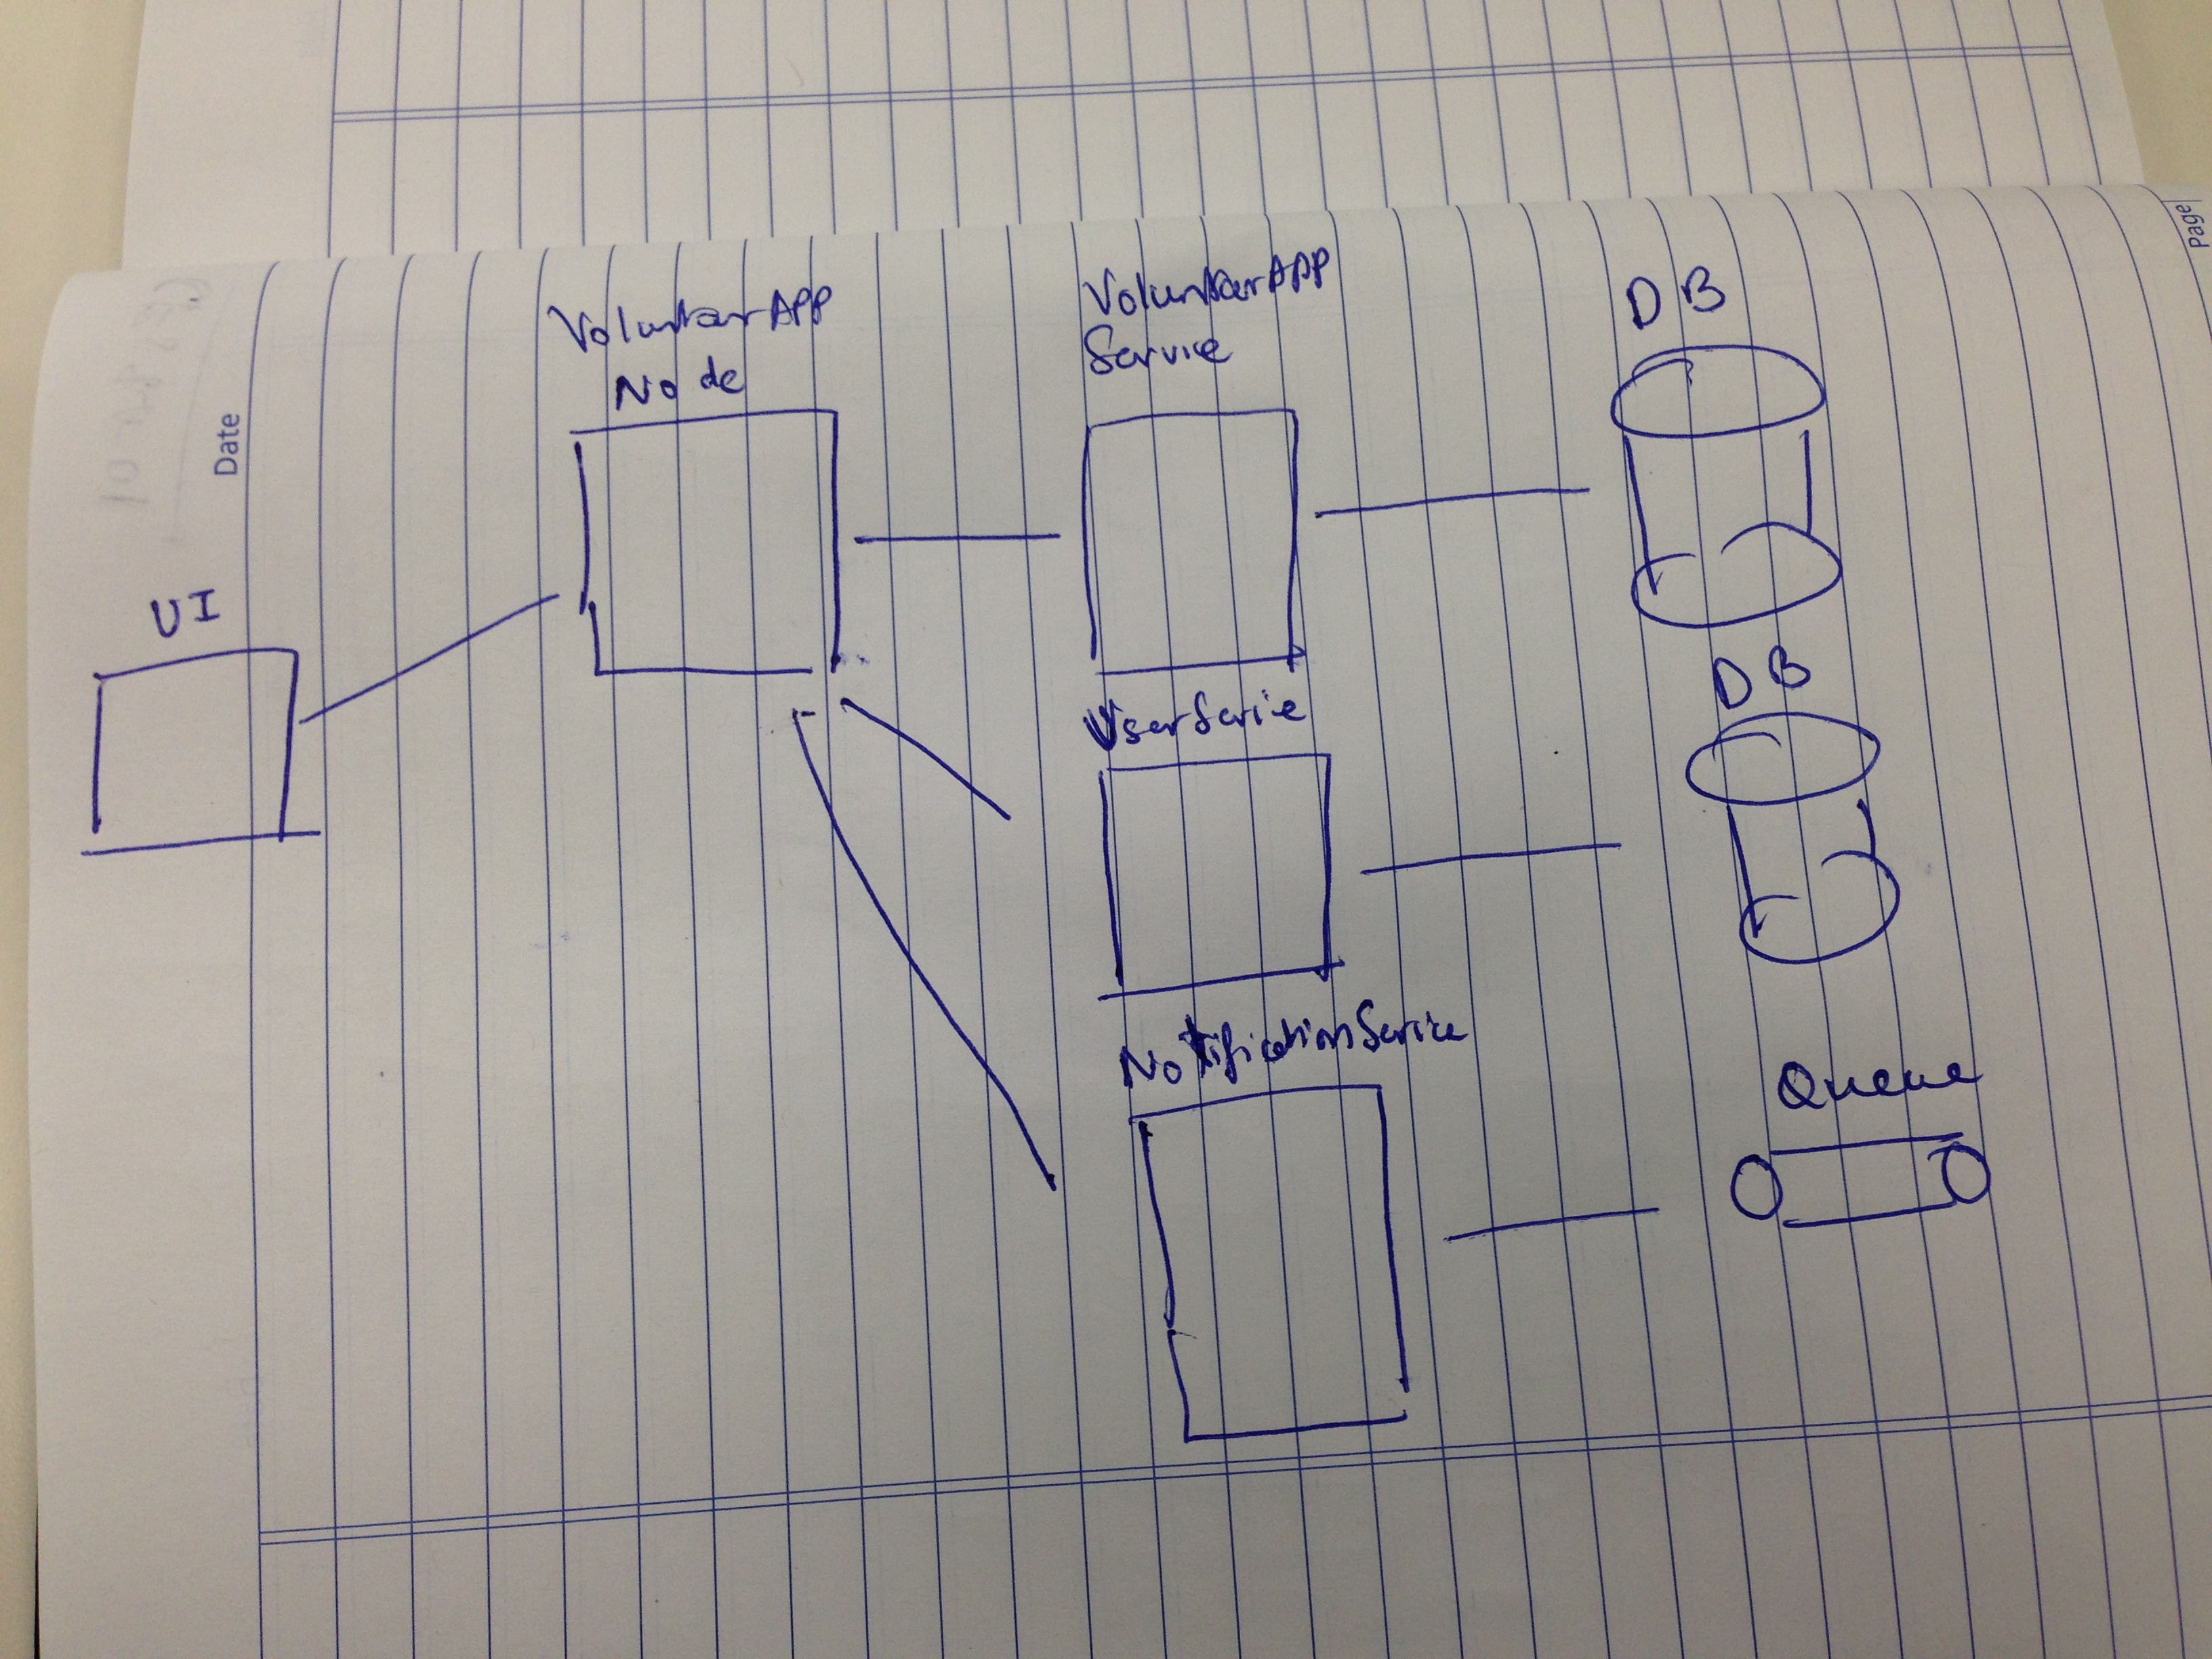 Date
UI
Volunter APP
Node
Volunter APP
Service
DB
User Servie
DB
Notification Service
Queue
Page